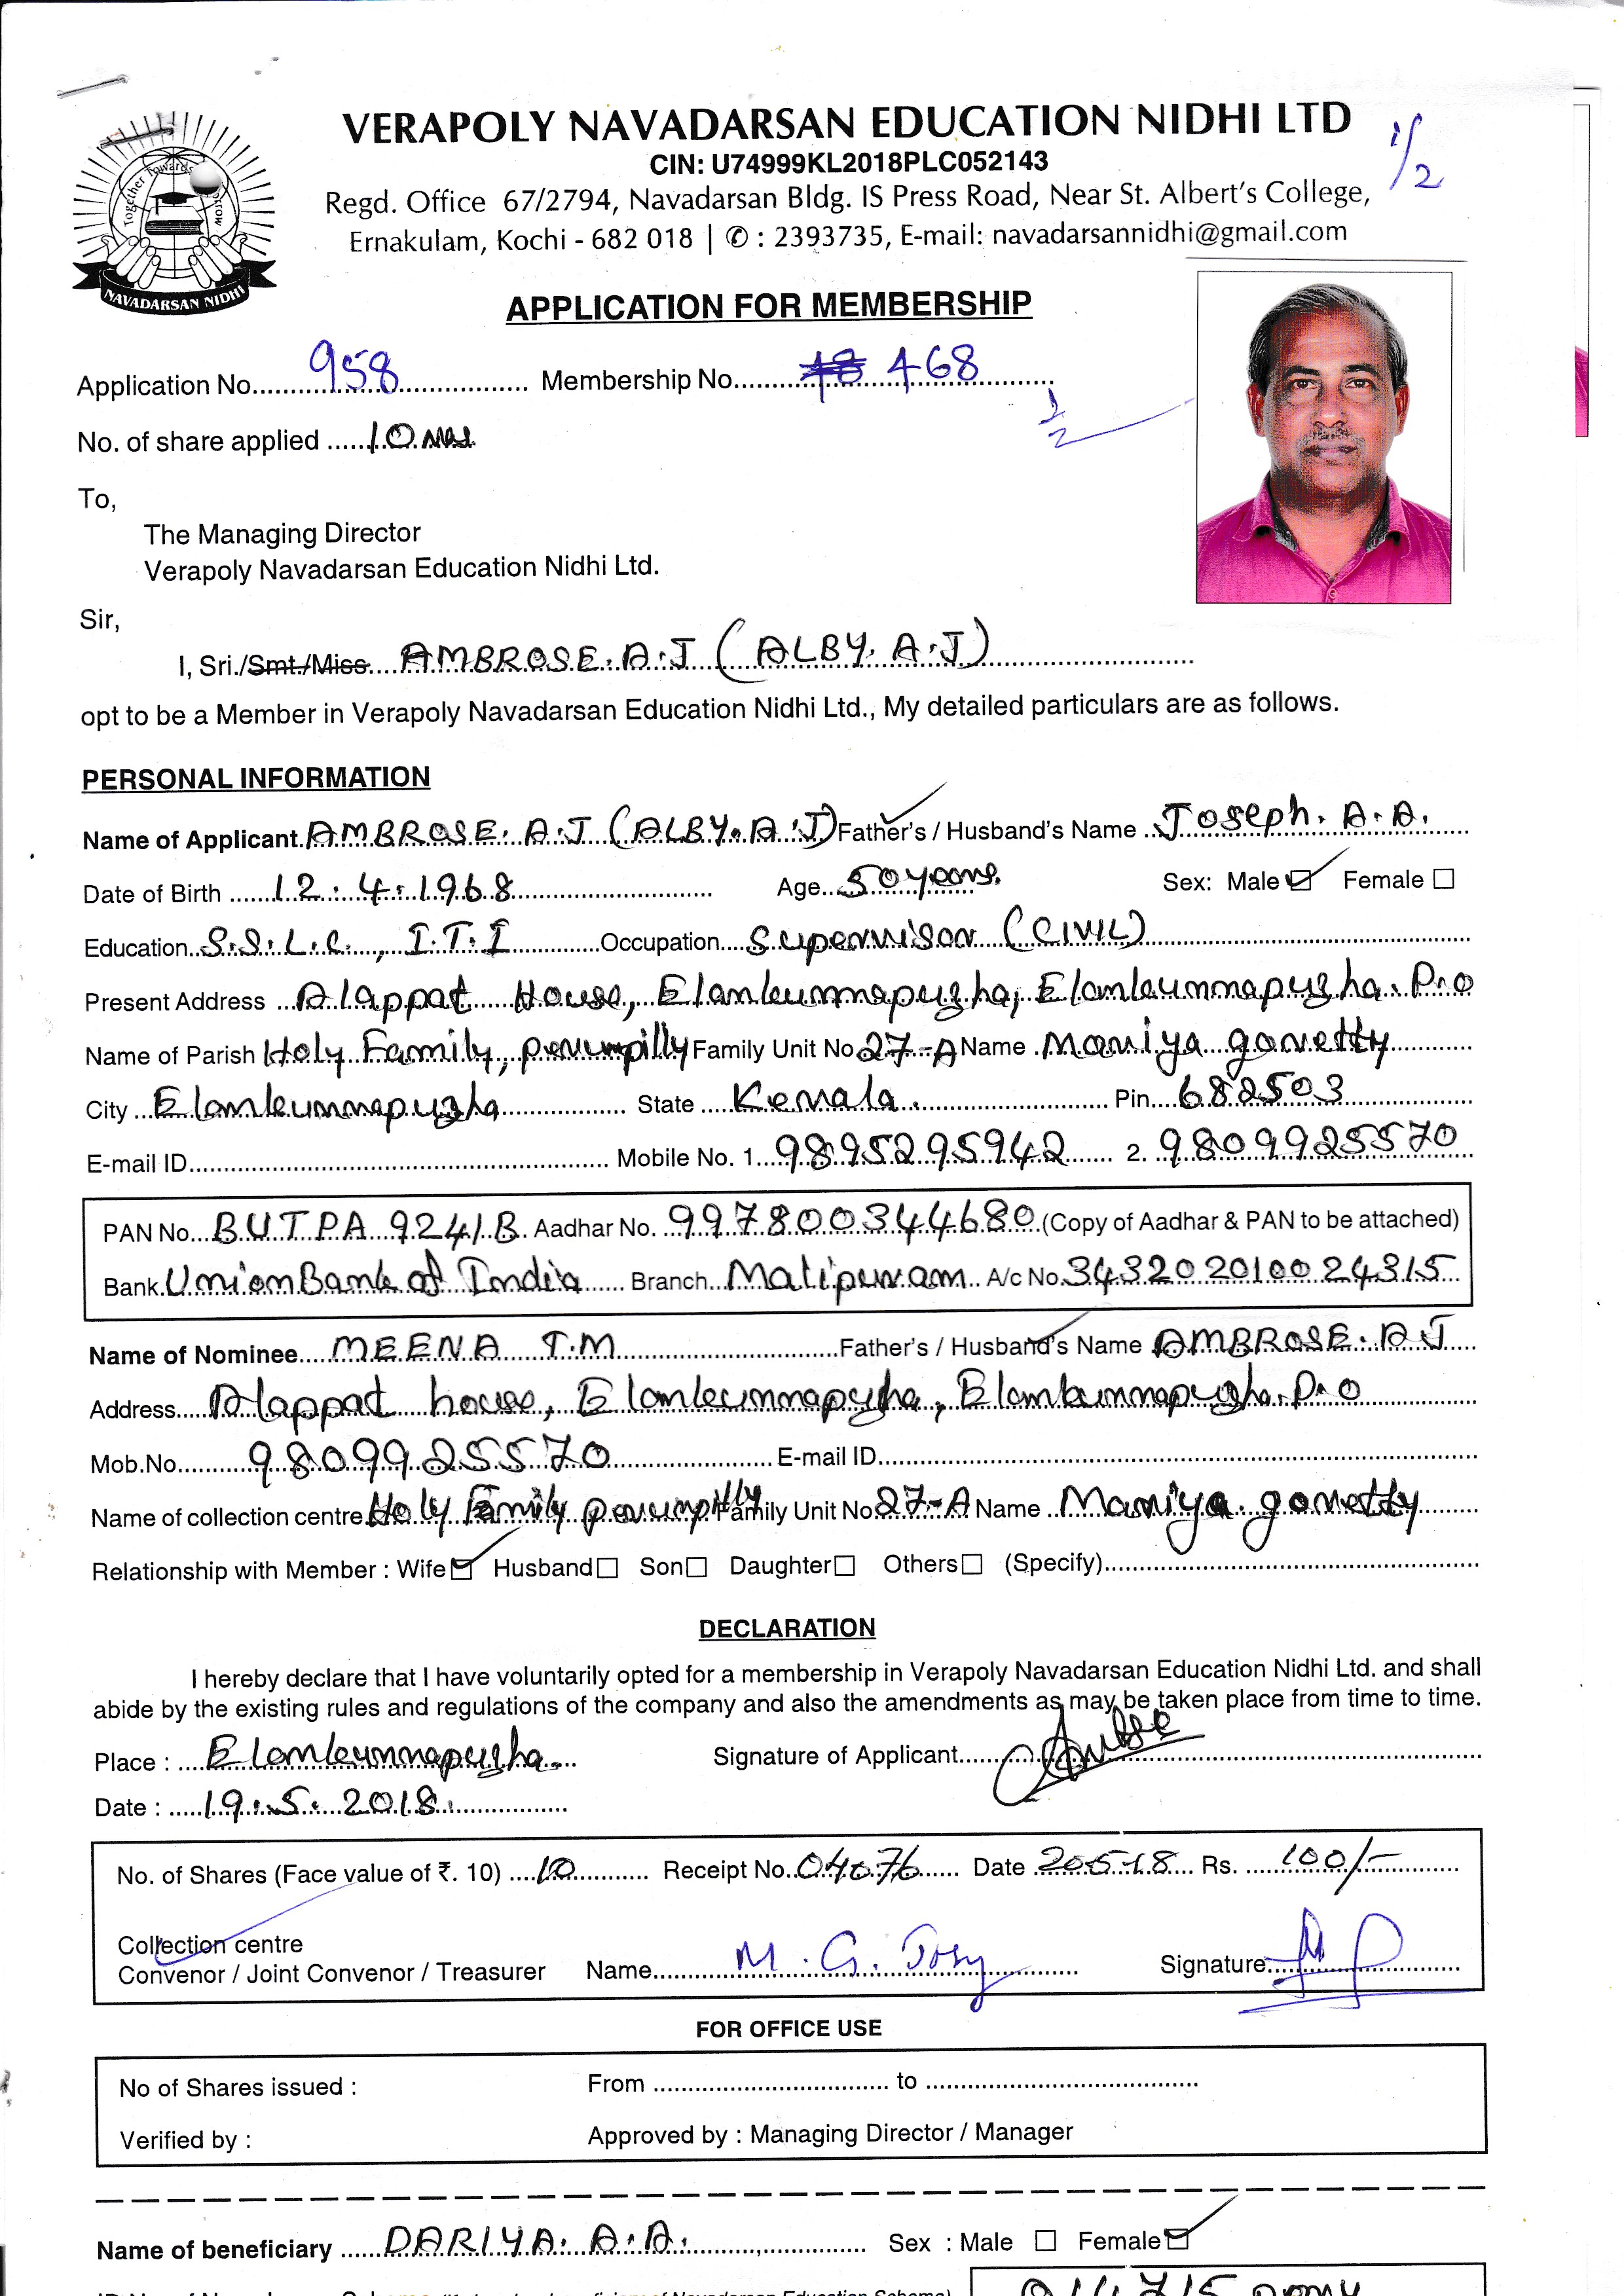 VERAPOLY NAVADARSAN EDUCATION NIDHI LTD
CIN: U74999KL2018PLC052143
Regd. Office 67/2794, Navadarsan Bldg. IS Press Road, Near St. Albert's College,
Ernakulam, Kochi - 682 018 | ✆ : 2393735, E-mail: navadarsannidhi@gmail.com
1/2
Together Towards
NAVADARSAN NIDHI
APPLICATION FOR MEMBERSHIP
Application No. 958 Membership No. 468
1/2
No. of share applied 10 nos
To,
The Managing Director
Verapoly Navadarsan Education Nidhi Ltd.
Sir,
I, Sri./Smt./Miss. AMBROSE. A.J (ALBY. A.J)
opt to be a Member in Verapoly Navadarsan Education Nidhi Ltd., My detailed particulars are as follows.
PERSONAL INFORMATION
Name of Applicant AMBROSE. A.J (ALBY. A.J) Father's / Husband's Name Joseph. A.A.
Date of Birth 12.4.1968 Age 50 years. Sex: Male ☑ Female ☐
Education S.S.L.C., I.T.I Occupation Supervisor (CIVIL)
Present Address Alappat House, Elamkunnapuzha, Elamkunnapuzha. P.O
Name of Parish Holy Family, perumpilly Family Unit No. 27-A Name Mariya goretty
City Elamkunnapuzha State Kerala. Pin 682503
E-mail ID Mobile No. 1. 9895295942 2. 9809925570
PAN No. BUTPA 9241B Aadhar No. 997800344680 (Copy of Aadhar & PAN to be attached)
Bank Union Bank of India Branch Malipuram A/c No. 343202010024315
Name of Nominee MEENA T.M Father's / Husband's Name AMBROSE. A.J
Address Alappat house, Elamkunnapuzha, Elamkunnapuzha. P.O
Mob.No. 9809925570 E-mail ID
Name of collection centre Holy Family perumpilly Family Unit No. 27-A Name Mariya goretty
Relationship with Member : Wife ☑ Husband ☐ Son ☐ Daughter ☐ Others ☐ (Specify)
DECLARATION
I hereby declare that I have voluntarily opted for a membership in Verapoly Navadarsan Education Nidhi Ltd. and shall
abide by the existing rules and regulations of the company and also the amendments as may be taken place from time to time.
Place : Elamkunnapuzha. Signature of Applicant
Date : 19.5.2018.
No. of Shares (Face value of ₹. 10) 10 Receipt No. 04076 Date 20-5-18 Rs. 100/-
Collection centre
Convenor / Joint Convenor / Treasurer Name M. G. Josy Signature
FOR OFFICE USE
No of Shares issued : From to
Verified by : Approved by : Managing Director / Manager
Name of beneficiary DARIYA. A.A. Sex : Male ☐ Female ☑